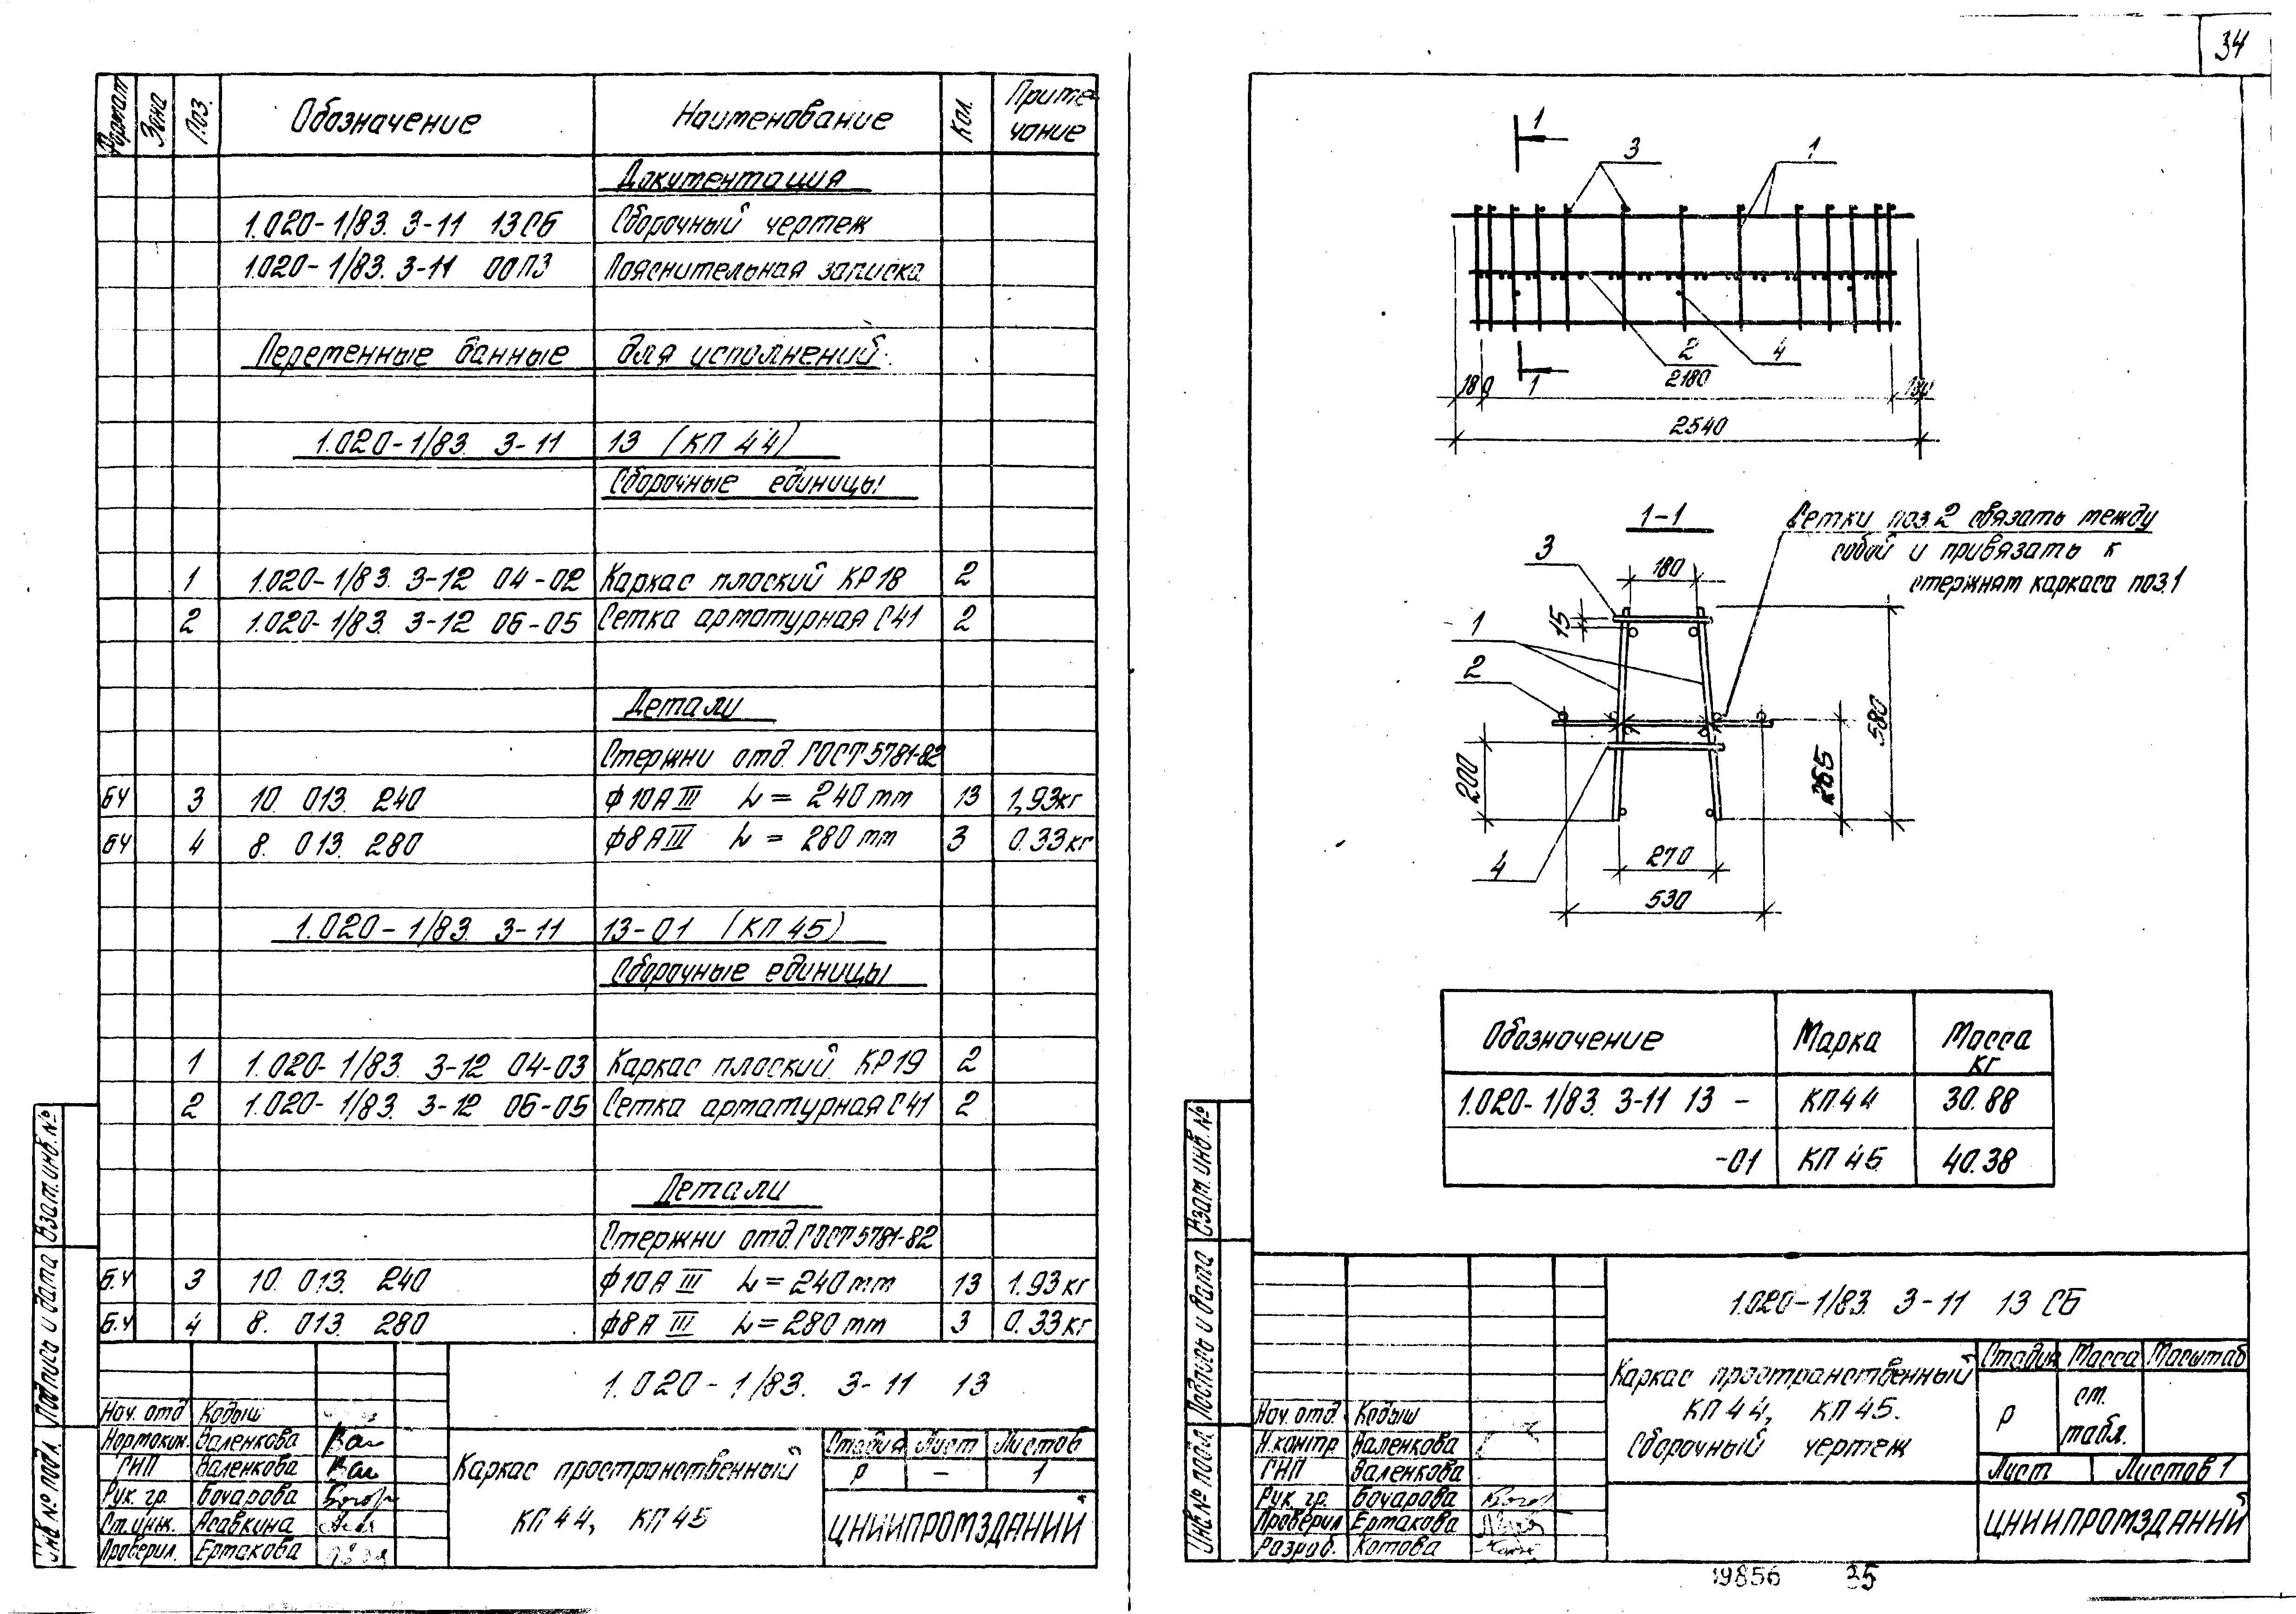 Формат Зона Поз. Обозначение Наименование Кол. Приме-
чание
Документация
1.020-1/83. 3-11 13СБ Сборочный чертеж
1.020-1/83. 3-11 00ПЗ Пояснительная записка
Переменные данные для исполнений:
1.020-1/83. 3-11 13 (КП 44)
Сборочные единицы
1 1.020-1/83. 3-12 04-02 Каркас плоский КР18 2
2 1.020-1/83. 3-12 06-05 Сетка арматурная С41 2
Детали
Стержни отд. ГОСТ 5781-82
БЧ 3 10. 013. 240 ф10АIII L = 240мм 13 1,93кг
БЧ 4 8. 013. 280 ф8АIII L = 280мм 3 0.33кг
1.020-1/83. 3-11 13-01 (КП 45)
Сборочные единицы
1 1.020-1/83. 3-12 04-03 Каркас плоский КР19 2
2 1.020-1/83. 3-12 06-05 Сетка арматурная С41 2
Детали
Стержни отд. ГОСТ 5781-82
Б.Ч 3 10. 013. 240 ф10А III L = 240мм 13 1.93кг
Б.Ч 4 8. 013. 280 ф8А III L = 280мм 3 0.33кг
1.020-1/83. 3-11 13
Нач. отд Кодыш
Нормокон. Валенкова
ГИП Валенкова
Рук. гр. Бочарова
Ст. инж. Асавкина
Проверил. Ермакова
Каркас пространственный
КП 44, КП 45
Стадия Лист Листов
Р - 1
ЦНИИПРОМЗДАНИЙ
Инв. № подл. Подпись и дата Взам. инв. №
34
1
3 1
2 4
2180
180 1 180
2540
1-1
Сетки поз. 2 связать между
собой и привязать к
стержням каркаса поз. 1
3
180
15
1
2
580
265
200
4
270
530
Обозначение Марка Масса
кг
1.020-1/83. 3-11 13 - КП 44 30.88
-01 КП 45 40.38
Инв. № подл. Подпись и дата Взам. инв. №
1.020-1/83. 3-11 13 СБ
Нач. отд. Кодыш
Н. контр Валенкова
ГИП Валенкова
Рук. гр. Бочарова
Проверил Ермакова
Разраб. Котова
Каркас пространственный
КП 44, КП 45.
Сборочный чертеж
Стадия Масса Масштаб
Р см.
табл.
Лист Листов 1
ЦНИИПРОМЗДАНИЙ
19856 35